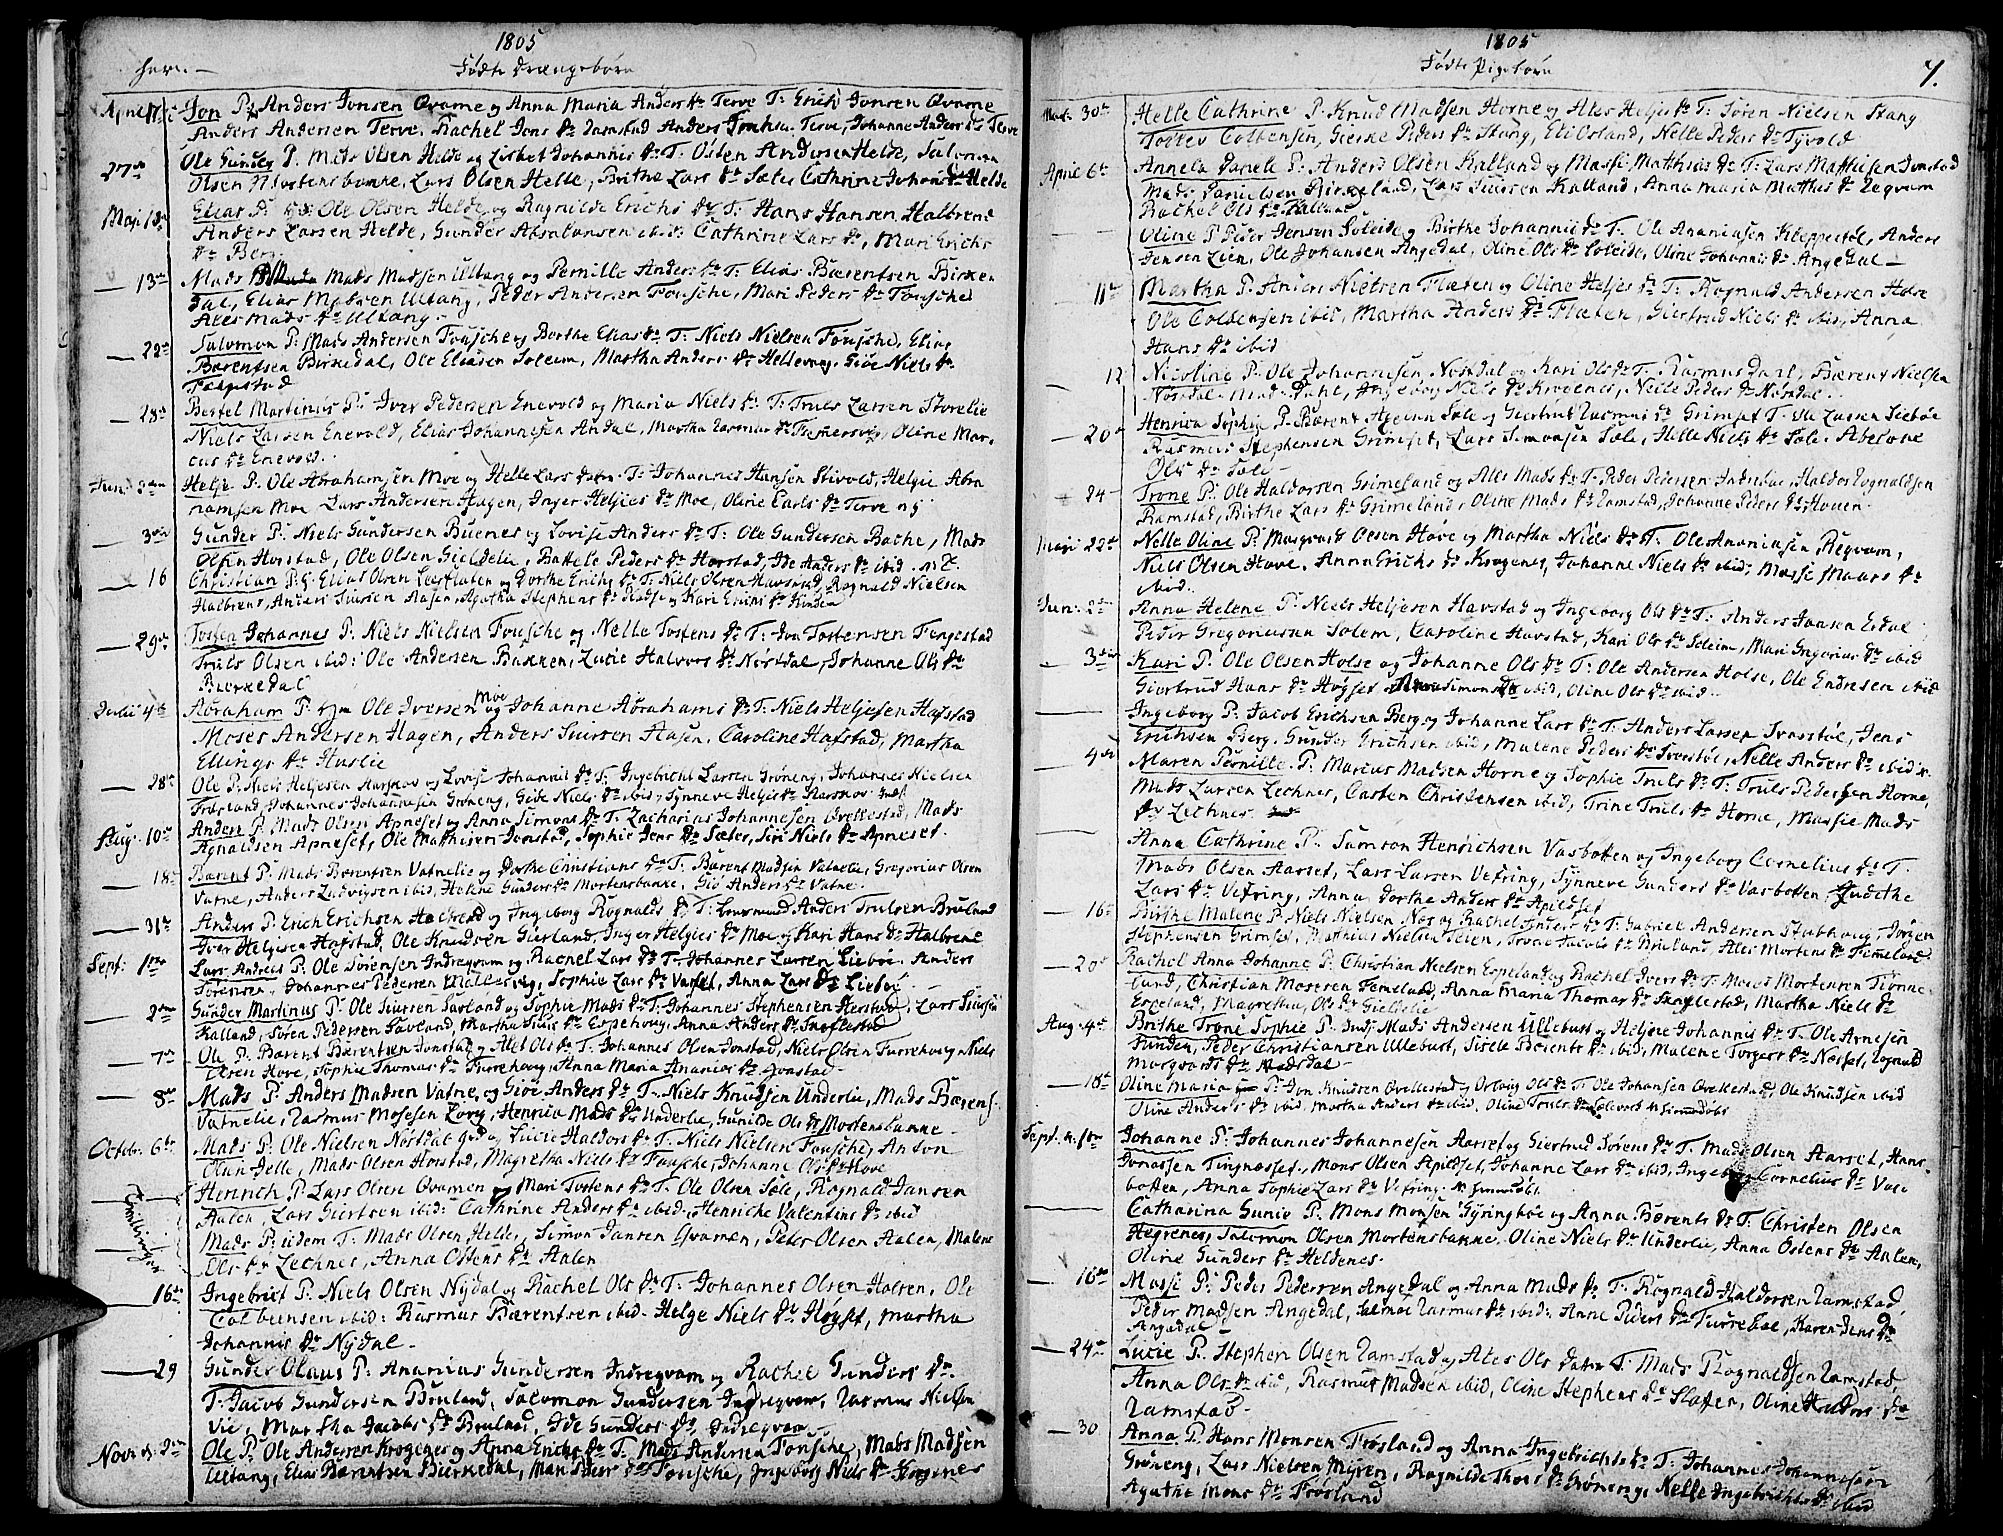 1805
Fødte Drængebørn
April 15 Jon P: Anders Jonsen Qvame og Anna Maria Anders Dr Terve T: Erich Jonsen Qvame
Anders Andersen Terve, Rachel Jons Dr Ramstad Anders Terve, Johanne Anders Dr Terve
27de Ole P. Mads Olsen Helde og Lisbet Johannis Dr T: Osten Andersen Helde, Salomon
Olsen Mortensbakke, Lars Olsen Helle, Brithe Lars Dr Sæter Cathrine Johannis Dr Helde
Maji Elias P: Ole Olsen Helde og Ragnilde Erichs Dr T: Hans Hansen Halbrend
Anders Larsen Helde, Gunder Absalonsen ibid: Cathrine Lars Dr, Mari Erichs
Dr Berg.
13de Mads Mads Madsen Ultang og Pernille Anders Dr T: Elias Bærentsen Birke
dal, Elias Madsen Ultang, Peder Andersen Fousche, Mari Peders Dr Fousche
Ales Mads Dr Ultang
Salomon P: Mads Andersen Fousche og Borthe Elias Dr T: Niels Nielsen Fousche, Elias
Bærentsen Birkedal, Ole Eliasen Soleim, Martha Anders Dr Hellevang, Giøe Niels Dr
Fengestad
28de Bertel Martinus P: Iver Pedersen Enevold og Maria Niels Dr T: Truls Larsen Storelie
Niels Larsen Enevold, Elias Johannesen Andal, Martha Rasmus Dr, Oline Mar
cus Dr Enevold.
Juni Helje P. Ole Abrahamsen Moe og Helle Lars T: Johannes Hansen Stivold, Helgie Abra
hamsen Moe Lars Andersen Hagen, Inger Helgies Dr Moe, Oline Earls Dr Terve
3die Gunder P: Niels Gundersen Buenes og Lovise Anders Dr T: Ole Gundersen Bache, Mads
Olsen Horstad, Ole Olsen Gieldelie, Peders Dr Horstad, Ide Anders Dr ibid.
16 Christian P: Elias Olsen og Dorthe Erichs Dr T: Niels Olsen Havstad, Rognald Nielsen
Halbrend, Anders Siursen Aasen, Agatha Stephens Dr og Kari Erichs Dr
29de Tosten Johannes P: Niels Nielsen Fousche og Nelle Tostens Dr T: Iva Tostensen Fengestad
Truls Olsen ibid: Ole Andersen Bakken, Lucie Halvors Dr Nøstdal, Johanne Ols Dr
Birkedal
Julii Abraham P: Ole Iversen Moe og Johanne Abrahams Dr T: Niels Heljesen Hafstad
Moses Andersen Hagen, Anders Siursen Aasen, Caroline Hafstad, Martha
Ellings Dr Huslie
28de Ole P. Niels Heljesen og Lovise Johannis Dr T: Ingebricht Larsen Grøneng, Johannes Nielsen
Frøsland, Johannes Johannesen Grøneng, Giøe Niels Dr ibid, Synneve Heljes Dr
Aug: 10de Anders P: Mads Olsen Apneset og Anna Simons Dr T: Zacharias Johannesen Qvellestad, Mads
Agnaldsen Apneset, Ole Mathisen Jonstad, Sophie Jens Dr Sæter, Siri Niels Dr Apneset
18 Bærent P: Mads Børentsen Vatnelie og Dorthe Christians Dr T: Bærent Madsen Vatnelie, Gregorius Olsen
Vatne, Anders Ludvigsen ibid, Helene Gunders Dr Mortensbakke, Giøe Anders Dr Vatne.
31te Anders P: Erich Erichsen Halbrend og Ingeborg Rognalds Dr T: Anders Trulsen Bruland
Iver Helgesen Hafstad, Ole Knudsen Gierland, Inger Helgies Dr Moe og Kari Hans Dr Halbrend
Sept: 1ste Lars Andreas P: Ole Sørensen Indreqvam og Rachel Lars Dr T: Johannes Larsen Liebøe, Anders
Sørensen, Johannes Pedersen, Sophie Lars Dr, Anna Lars Dr Liebøe
Gunder Martinus P: Ole Siursen Savland og Sophie Mads Dr T: Johannes Stephensen Herstad, Lars Siursen
Kalland, Søren Pedersen Savland, Martha Siurs Dr Espehoug, Anna Anders Dr
7de Ole P: Bærent Bærentsen Jonstad og Alet Ols Dr T: Johannes Olsen Jonstad, Niels Olsen Furrehoug, Niels
Olsen Hove, Sophie Thomas Dr Furrehoug, Anna Maria Ananias Dr Jonstad
8de Mads P: Anders Madsen Vatne, og Giøe Anders Dr T: Niels Knudsen Underlie, Mads Bærens.
Vatnelie, Rasmus Mosesen, Henrica Mads Dr Underlie, Gunilde Ols Dr Mortensbakke
Octobr: 6te Mads P: Ole Nielsen Nøstdal og Lucie Haldors Dr T: Niels Nielsen Fousche, Anton
Olsen, Mads Olsen Horstad, Magretha Niels Dr Fousche, Johanne Ols Dr Hove
Tvillinger
Henrich P: Lars Olsen Qvamen og Mari Tostens Dr T: Ole Olsen Sæle, Rognald Jansen
Aalen, Lars Giertsen ibid: Cathrine Anders Dr ibid, Henriche Valentins Dr ibid
Mads P: iidem T: Mads Olsen Helde, Simon Jansen Qvamen, Peter Olsen Aalen, Malene
Ols Dr Lechnes, Anna Ostens Dr Aalen
16de Ingebrict P: Niels Olsen Nydal og Rachel Ols Dr T: Johannes Olsen Halsen, Ole
Colbensen ibid: Rasmus Bærentsen ibid: Helge Niels Dr Høyset, Martha
Johannis Dr Nydal
29 Gunder Olaus P: Ananias Gundersen Indreqvam og Rachel Gunders Dr.
T: Jacob Gundersen Bruland, Salomon Gundersen Indreqvam, Rasmus Nielsen
Vie, Martha Jacobs Dr Bruland, Ide Gunders Dr Indreqvam
Novbr: Ole P: Ole Andersen Krogenes og Anna Erichs Dr T. Mads Andersen Fousche, Mads Madsen
Ultang, Elias Bærentsen Birkedal, Mari Peders Dr Fousche, Ingeborg Niels Dr Krogenes
1805
Fødte Pigebørn
7.
30te Helle Cathrine P: Knud Madsen Horne og Ales Heljes Dr T: Søren Nielsen Stang
Tosten Colbensen, Gierske Peders Dr Stang, Eli Osland, Nelle Peders Dr Tyvold
April 6te Annela Danele P: Anders Olsen Kalland og Massi Matthias Dr T: Lars Matthisen Jonstad
Mads Danielsen Birkeland, Lars Siursen Kalland, Anna Maria Matthis Dr Reqvam
Rachel Ols Dr Kalland
Oline P: Peder Jensen Soleide og Birthe Johannis Dr T. Ole Ananiasen Kleppestøl, Anders
Jensen Lien, Ole Johansen Angedal, Oline Ols Dr Soleide, Oline Johannis Dr Angedal
11te Martha P: Anders Nielsen Flæten og Oline Heljes Dr T: Rognald Andersen Holse
Ole Colbensen ibid, Martha Anders Dr Flæten, Giertrud Niels Dr ibid, Anna
Hans Dr ibid
12 Nicoline P: Ole Johannesen Nøstdal og Kari Ols Dr T: Rasmus Dahl, Bærent Nielsen
Nøstdal, Mads Dahl, Ingeborg Niels Dr Krogenes, Nelle Peders Dr Nøstdal.
20de Henrica Sophie P: Bærent Sæle og Giertrud Rasmus Dr Grimset T: Ole Larsen Liebøe
Rasmus Stephensen Grimset, Lars Simonsen Sæle, Helle Niels Dr Sæle, Abelone
Ols Dr Sæle
24 Trone P: Ole Haldorsen Grimeland og Ales Mads Dr T: Peder Pedersen Indredal, Haldor Rognaldsen
Ramstad, Birthe Lars Dr Grimeland, Oline Mads Dr Ramstad, Johanne Peders Dr Hoven
Maji 22de Nelle Oline P: Olsen Hove og Martha Niels Dr T: Ole Ananiasen Reqvam,
Niels Olsen Hove, Anna Erichs Dr Krogenes, Johanne Niels Dr ibid, Massi Maars Dr
ibid.
Juni Anna Helene P: Niels Heljesen Havstad og Ingeborg Ols Dr T: Anders Jansen Erdal
Peder Gregoriusen Solem, Caroline Havstad, Kari Ols Dr Soleim, Mari Ingorius Dr ibid
3die Kari P: Ole Olsen Holse og Johanne Ols Dr T: Ole Andersen Holse, Ole Endresen ibid
Giertrud Hans Dr Høyset, Simons Dr ibid, Oline Ols Dr ibid
Ingeborg P: Jacob Erichsen Berg og Johanne Lars Dr T: Anders Larsen, Jens
Erichsen Berg, Gunder Erichsen ibid, Malene Peders Dr, Nelle Anders Dr ibid
4de Maren Pernille P: Marcus Madsen Horne og Sophie Truls Dr T. Truls Pedersen Horne,
Mads Larsen Lechnes, Casten Christensen ibid, Trine Truls Dr Horne, Massie Mads
Dr Lechnes
Anna Cathrine P: Samson Henrichsen Vasbotten og Ingeborg Cornelius Dr T.
Mads Olsen Aarset, Lars Larsen Vefring, Synneve Gunders Dr Vasbotten, Judithe
Lars Dr Vefring, Anna Dorthe Anders Dr Apildset
16 Birthe Malene P: Niels Nielsen og Rachel Dr T: Gabriel Andersen Stubhoug, Jørgen
Stephensen Grimset, Matthias Nielsen, Trone Jacobs Dr Bruland, Ales Mortens Dr Femeland
20de Rachel Anna Johanne P: Christian Nielsen Espeland og Rachel Ivers Dr T: Mons Mortensen Tionne
lund, Christian Mosesen Femeland, Anna Maria Thomas Dr, Martha Niels Dr
Espeland, Magretha Ols Dr Gieldelie
Aug: 4de Brithe Trone Sophie P: Mads Andersen Ullebust og Heljne Johannis Dr T. Ole Arnesen
Sunden, Peder Christiansen Ullebust, Sisele Bærents Dr ibid, Malene Torgers Dr, Rognald
18de Oline Maria P: Jon Knudsen Qvellestad og Ols Dr T: Ole Johansen Qvellestad, Ole Knudsen ibid
Oline Anders Dr ibid, Martha Anders Dr ibid, Oline Truls Dr
Sept: 1ste Johanne P: Johannes Johannesen Aarset og Giertrud Sørens Dr T. Mads Olsen Aarset, Hans
Jonassen Tingnæsset, Mons Olsen Apildset, Johanne Lars Dr ibid, Ingeborg Cornelius Dr Vas
botten, Anna Sophie Lars Dr Vefring
Catharina P: Mons Monsen Gyringbøe og Anna Bærents Dr T: Christen Olsen
Hegrenes, Salomon Olsen Mortensbakke, Oline Niels Dr Underlie, Anna Ostens Dr Aalen,
Oline Gunders Dr Heldenes
16de Massi P: Peder Pedersen Angedal og Anna Mads Dr T: Rognald Haldorsen Ramstad
Peder Madsen Angedal, Rasmus Dr ibid: Anne Peders Dr Furrebøe, Karen Jens Dr
Angedal
24de Lucie P: Stephen Olsen Ramstad og Ales Ols T: Mads Rognaldsen Ramstad,
Anna Ols Dr ibid, Rasmus Madsen ibid, Oline Stephens Dr Slotten, Oline Haldors Dr
Ramstad
30 Anna P: Hans Monsen Frøsland og Anna Ingebrichts Dr T: Johannes Johannesen
Grøneng, Lars Nielsen Myren, Ragnilde Thors Dr Grøneng, Nelle Ingebrichts Dr ibid
Agathe Mons Dr Frøsland